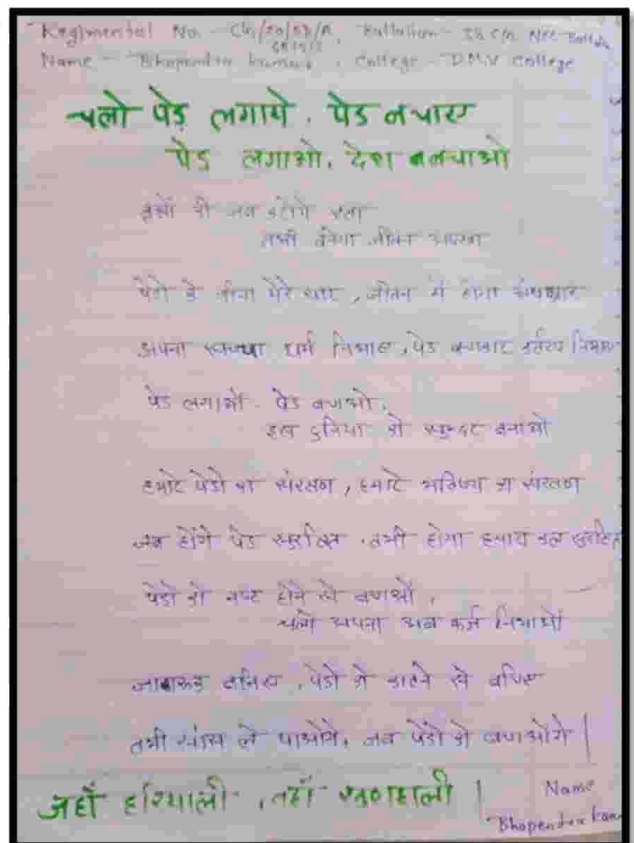 Regimental No - Battalion - NCC
Name - Bhopendra Kumar, College - DMV College
चलो पेड़ लगाये, पेड़ बचाए
पेड लगाओ, देश बचाओ
वृक्षों की जब करोगे रक्षा
तभी बनेगा जीवन अच्छा
पेडो के बीना मेरे यार, जीवन में होगा अंधकार
अपना सच्चा धर्म निभाए, पेड बचाकर कर्तव्य निभाए
पेड लगाओ - पेड बचाओ,
इस दुनिया को सुन्दर बनाओ
हमारे पेडो का संरक्षण, हमारे भविष्य का संरक्षण
जब होंगे पेड सुरक्षित, तभी होगा हमारा कल सुरक्षित
पेडो को नष्ट होने से बचाओ,
चलो अपना अब फर्ज निभाओ
जागरूक बनिए, पेडो को काटने से बचिए
तभी सांस ले पाओगे, जब पेडो को बचाओगे |
जहाँ हरियाली, वहाँ खुशहाली |
Name
Bhopendra kumar